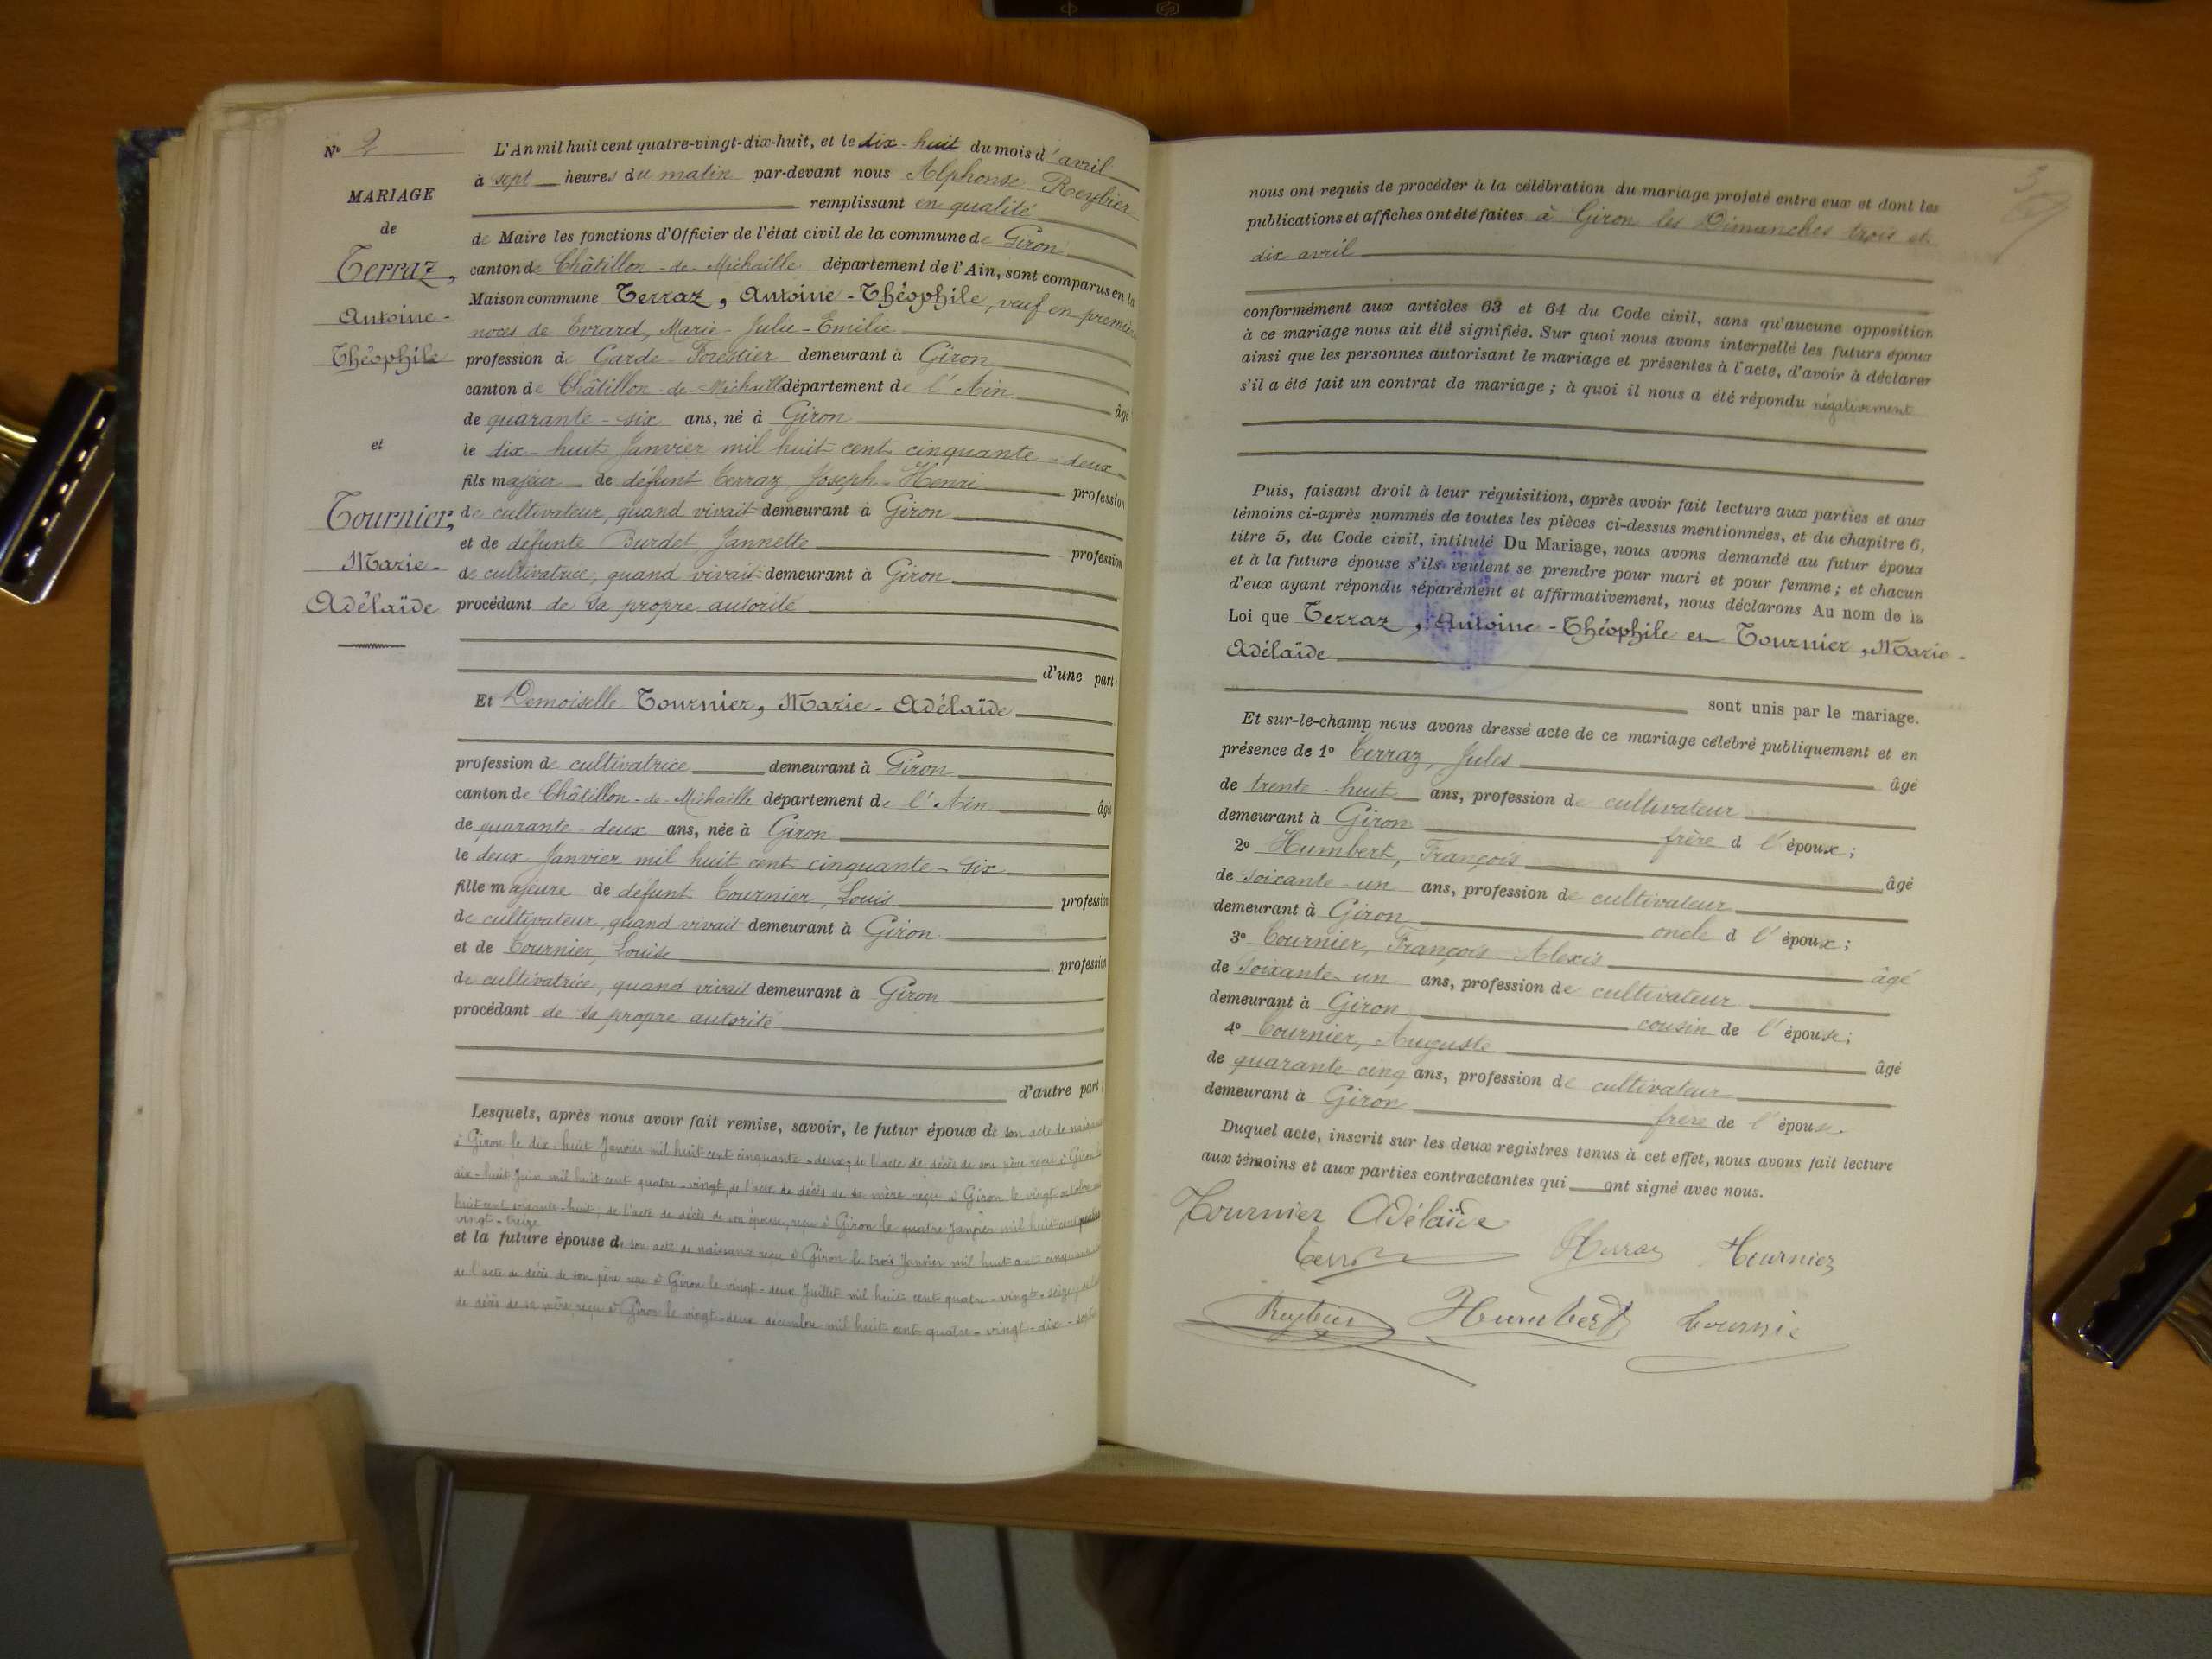 N° 2
MARIAGE
de
Terraz,
Antoine-
Théophile
et
Tournier,
Marie-
Adélaïde
L'An mil huit cent quatre-vingt-dix-huit, et le dix-huit du mois d'avril
à sept heures du matin par-devant nous Alphonse Reybier
remplissant en qualité
de Maire les fonctions d'Officier de l'état civil de la commune de Giron
canton de Châtillon-de-Michaille département de l'Ain, sont comparus en la
Maison commune Terraz, Antoine-Théophile, veuf en premières
noces de Evrard, Marie-Julie-Emilie
profession de Garde-Forestier demeurant à Giron
canton de Châtillon-de-Michaille département de l'Ain âgé
de quarante-six ans, né à Giron
le dix-huit Janvier mil huit cent cinquante-deux
fils majeur de défunt Terraz Joseph-Henri profession
de cultivateur, quand vivait demeurant à Giron
et de défunte Burdet Jannette profession
de cultivatrice, quand vivait demeurant à Giron
procédant de sa propre autorité
d'une part;
Et Demoiselle Tournier, Marie-Adélaïde
profession de cultivatrice demeurant à Giron
canton de Châtillon-de-Michaille département de l'Ain âgée
de quarante-deux ans, née à Giron
le deux Janvier mil huit cent cinquante-six
fille majeure de défunt Tournier, Louis profession
de cultivateur, quand vivait demeurant à Giron
et de Tournier, Louise profession
de cultivatrice, quand vivait demeurant à Giron
procédant de sa propre autorité
d'autre part;
Lesquels, après nous avoir fait remise, savoir, le futur époux de son acte de naissance
à Giron le dix-huit Janvier mil huit cent cinquante-deux, de l'acte de décès de son père reçu à Giron le
dix-huit Juin mil huit cent quatre-vingt, de l'acte de décès de sa mère reçu à Giron le vingt octobre mil
huit cent soixante-huit, de l'acte de décès de son épouse, reçu à Giron le quatre Janvier mil huit cent quatre
vingt-treize
et la future épouse de son acte de naissance reçu à Giron le trois Janvier mil huit cent cinquante
de l'acte de décès de son père reçu à Giron le vingt-deux Juillet mil huit cent quatre-vingt-seize,
de décès de sa mère reçu à Giron le vingt-deux décembre mil huit cent quatre-vingt-dix-sept
3
nous ont requis de procéder à la célébration du mariage projeté entre eux et dont les
publications et affiches ont été faites à Giron les Dimanches trois et
dix avril
conformément aux articles 63 et 64 du Code civil, sans qu'aucune opposition
à ce mariage nous ait été signifiée. Sur quoi nous avons interpellé les futurs époux
ainsi que les personnes autorisant le mariage et présentes à l'acte, d'avoir à déclarer
s'il a été fait un contrat de mariage; à quoi il nous a été répondu négativement
Puis, faisant droit à leur réquisition, après avoir fait lecture aux parties et aux
témoins ci-après nommés de toutes les pièces ci-dessus mentionnées, et du chapitre 6,
titre 5, du Code civil, intitulé Du Mariage, nous avons demandé au futur époux
et à la future épouse s'ils veulent se prendre pour mari et pour femme; et chacun
d'eux ayant répondu séparément et affirmativement, nous déclarons Au nom de la
Loi que Terraz, Antoine-Théophile et Tournier, Marie-
Adélaïde
sont unis par le mariage.
Et sur-le-champ nous avons dressé acte de ce mariage célébré publiquement et en
présence de 1° Terraz, Jules âgé
de trente-huit ans, profession de cultivateur
demeurant à Giron frère d l'époux;
2° Humbert, François âgé
de soixante-un ans, profession de cultivateur
demeurant à Giron oncle d l'époux;
3° Tournier, François-Alexis âgé
de soixante-un ans, profession de cultivateur
demeurant à Giron cousin de l'épouse;
4° Tournier, Auguste âgé
de quarante-cinq ans, profession de cultivateur
demeurant à Giron frère de l'épouse.
Duquel acte, inscrit sur les deux registres tenus à cet effet, nous avons fait lecture
aux témoins et aux parties contractantes qui ont signé avec nous.
Tournier Adélaïde
Terraz Terraz Tournier
Reybier Humbert Tournier